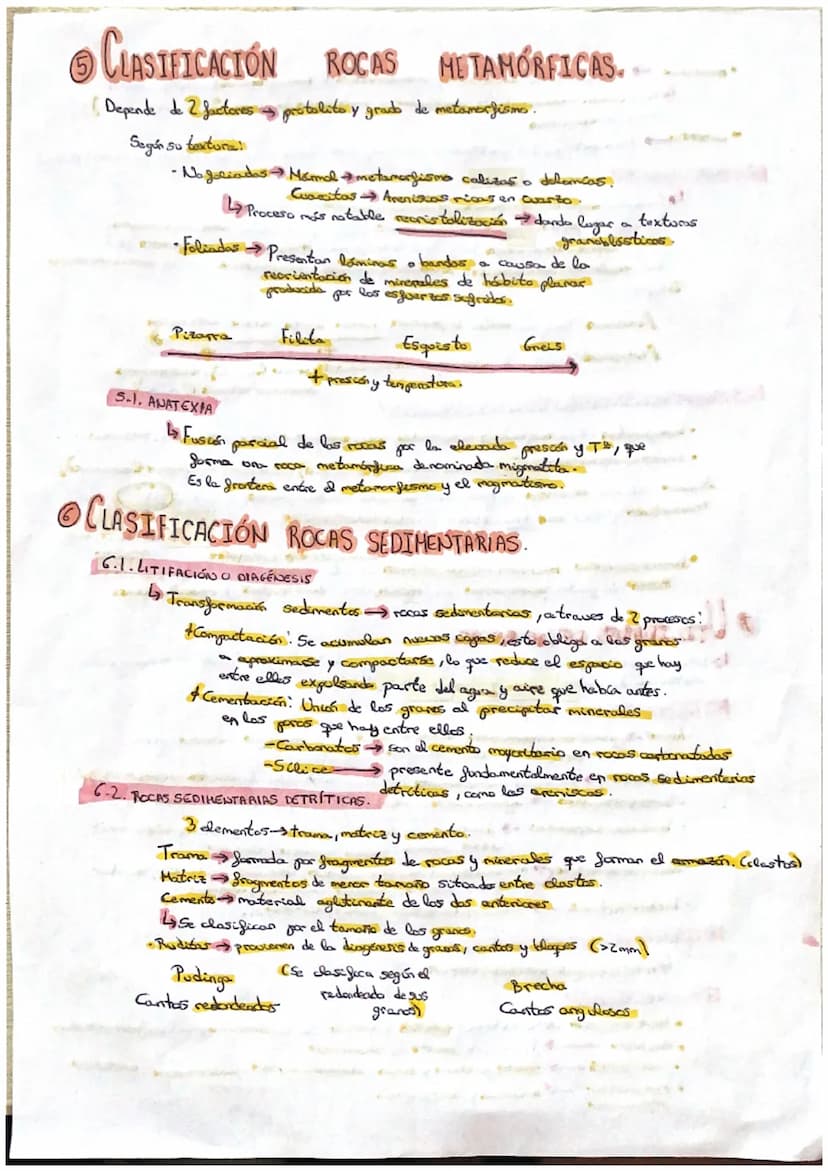 ⑤ CLASIFICACIÓN ROCAS METAMÓRFICAS.
Depende de 2 factores → protolito y grado de metamorfismo.
Según su textura:
- No foliadas → Mármol → metamorfismo calizas o dolomías.
Cuarcitas → Areniscas ricas en cuarzo
↳ Proceso más notable recristalización → dando lugar a texturas
granoblásticas.
- Foliadas → Presentan láminas o bandas a causa de la
reorientación de minerales de hábito planar
producida por los esfuerzos sufridos.
Pizarra Filita Esquisto Gneis
+ presión y temperatura.
5.1. ANATEXIA
↳ Fusión parcial de las rocas por la elevada presión y Tª, que
forma una roca metamórfica denominada migmatita.
Es la frontera entre el metamorfismo y el magmatismo.
⑥ CLASIFICACIÓN ROCAS SEDIMENTARIAS.
6.1. LITIFACIÓN O DIAGÉNESIS
↳ Transformación sedimentos → rocas sedimentarias, a traves de 2 procesos:
+ Compactación: Se acumulan nuevas capas, esto obliga a los granos
a aproximarse y compactarse, lo que reduce el espacio que hay
entre ellos expulsando parte del agua y aire que había antes.
+ Cementación: Unión de los granos al precipitar minerales
en los poros que hay entre ellos:
- Carbonatos → son el cemento mayoritario en rocas carbonatadas
- Sílice → presente fundamentalmente en rocas sedimentarias
detríticas, como las areniscas.
6.2. ROCAS SEDIMENTARIAS DETRÍTICAS.
3 elementos → trama, matriz y cemento.
Trama → formada por fragmentos de rocas y minerales que forman el armazón. (clastos)
Matriz → fragmentos de menor tamaño situados entre clastos.
Cemento → material aglutinante de los dos anteriores
↳ Se clasifican por el tamaño de los granos.
- Ruditas → provienen de la diagénesis de gravas, cantos y bloques (>2mm)
Pudinga (Se clasifica según el Brecha
Cantos redondeados redondeado de sus Cantos angulosos
granos)